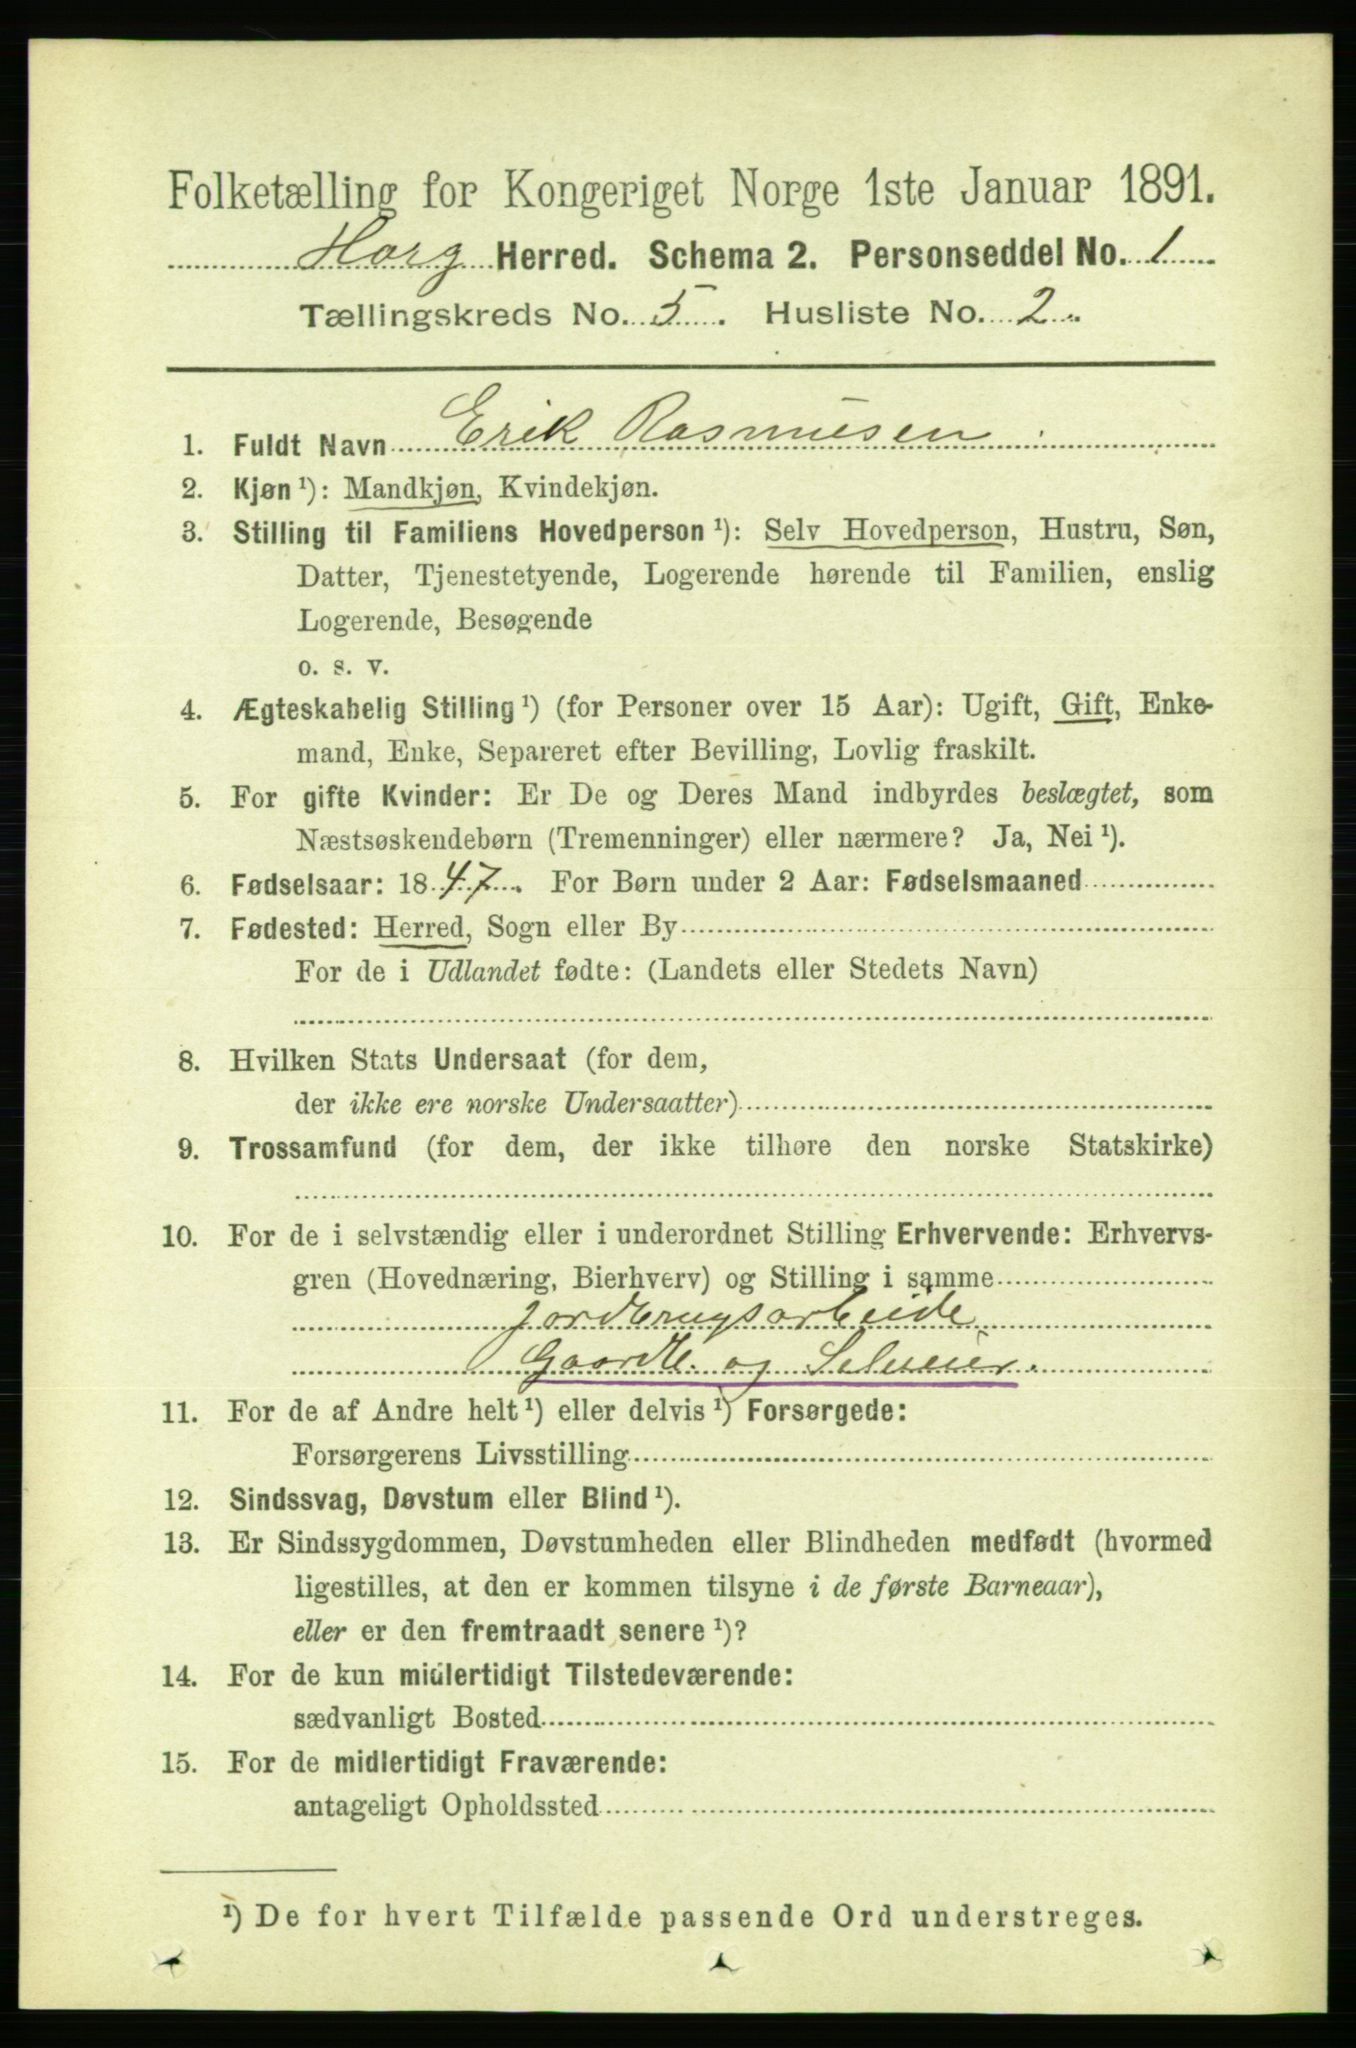 Folketælling for Kongeriget Norge 1ste Januar 1891.
Horg Herred. Schema 2. Personseddel No. 1
Tællingskreds No. 5. Husliste No. 2.
1. Fuldt Navn Erik Rasmusen
2. Kjøn ¹): Mandkjøn, Kvindekjøn.
3. Stilling til Familiens Hovedperson ¹): Selv Hovedperson, Hustru, Søn,
Datter, Tjenestetyende, Logerende hørende til Familien, enslig
Logerende, Besøgende
o. s. v.
4. Ægteskabelig Stilling ¹) (for Personer over 15 Aar): Ugift, Gift, Enke-
mand, Enke, Separeret efter Bevilling, Lovlig fraskilt.
5. For gifte Kvinder: Er De og Deres Mand indbyrdes beslægtet, som
Næstsøskendebørn (Tremenninger) eller nærmere? Ja, Nei ¹).
6. Fødselsaar: 1847. For Børn under 2 Aar: Fødselsmaaned
7. Fødested: Herred, Sogn eller By
For de i Udlandet fødte: (Landets eller Stedets Navn)
8. Hvilken Stats Undersaat (for dem,
der ikke ere norske Undersaatter)
9. Trossamfund (for dem, der ikke tilhøre den norske Statskirke)
10. For de i selvstændig eller i underordnet Stilling Erhvervende: Erhvervs-
gren (Hovednæring, Bierhverv) og Stilling i samme
Jordbrugsarbeide
Gaardb. og Selveier.
11. For de af Andre helt ¹) eller delvis ¹) Forsørgede:
Forsørgerens Livsstilling
12. Sindssvag, Døvstum eller Blind ¹).
13. Er Sindssygdommen, Døvstumheden eller Blindheden medfødt (hvormed
ligestilles, at den er kommen tilsyne i de første Barneaar),
eller er den fremtraadt senere ¹)?
14. For de kun midlertidigt Tilstedeværende:
sædvanligt Bosted
15. For de midlertidigt Fraværende:
antageligt Opholdssted
¹) De for hvert Tilfælde passende Ord understreges.